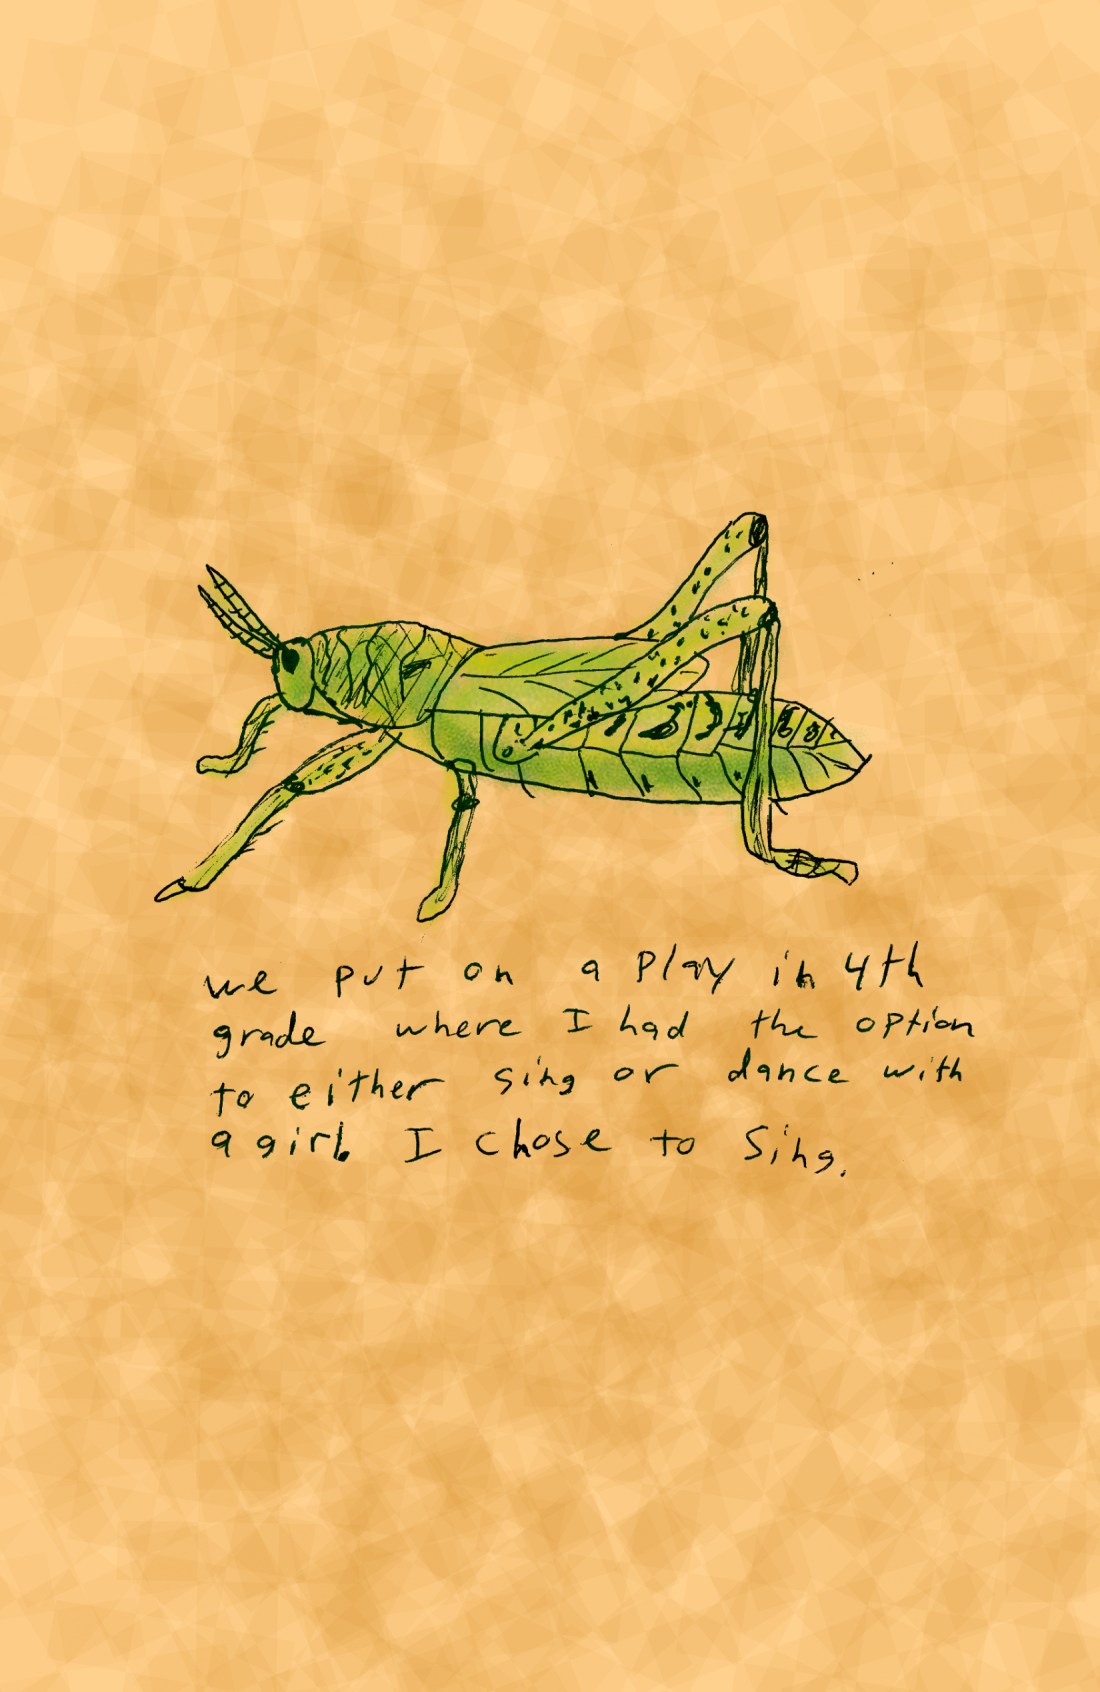 we put on a play in 4th
grade where I had the option
to either sing or dance with
a girl. I chose to sing.